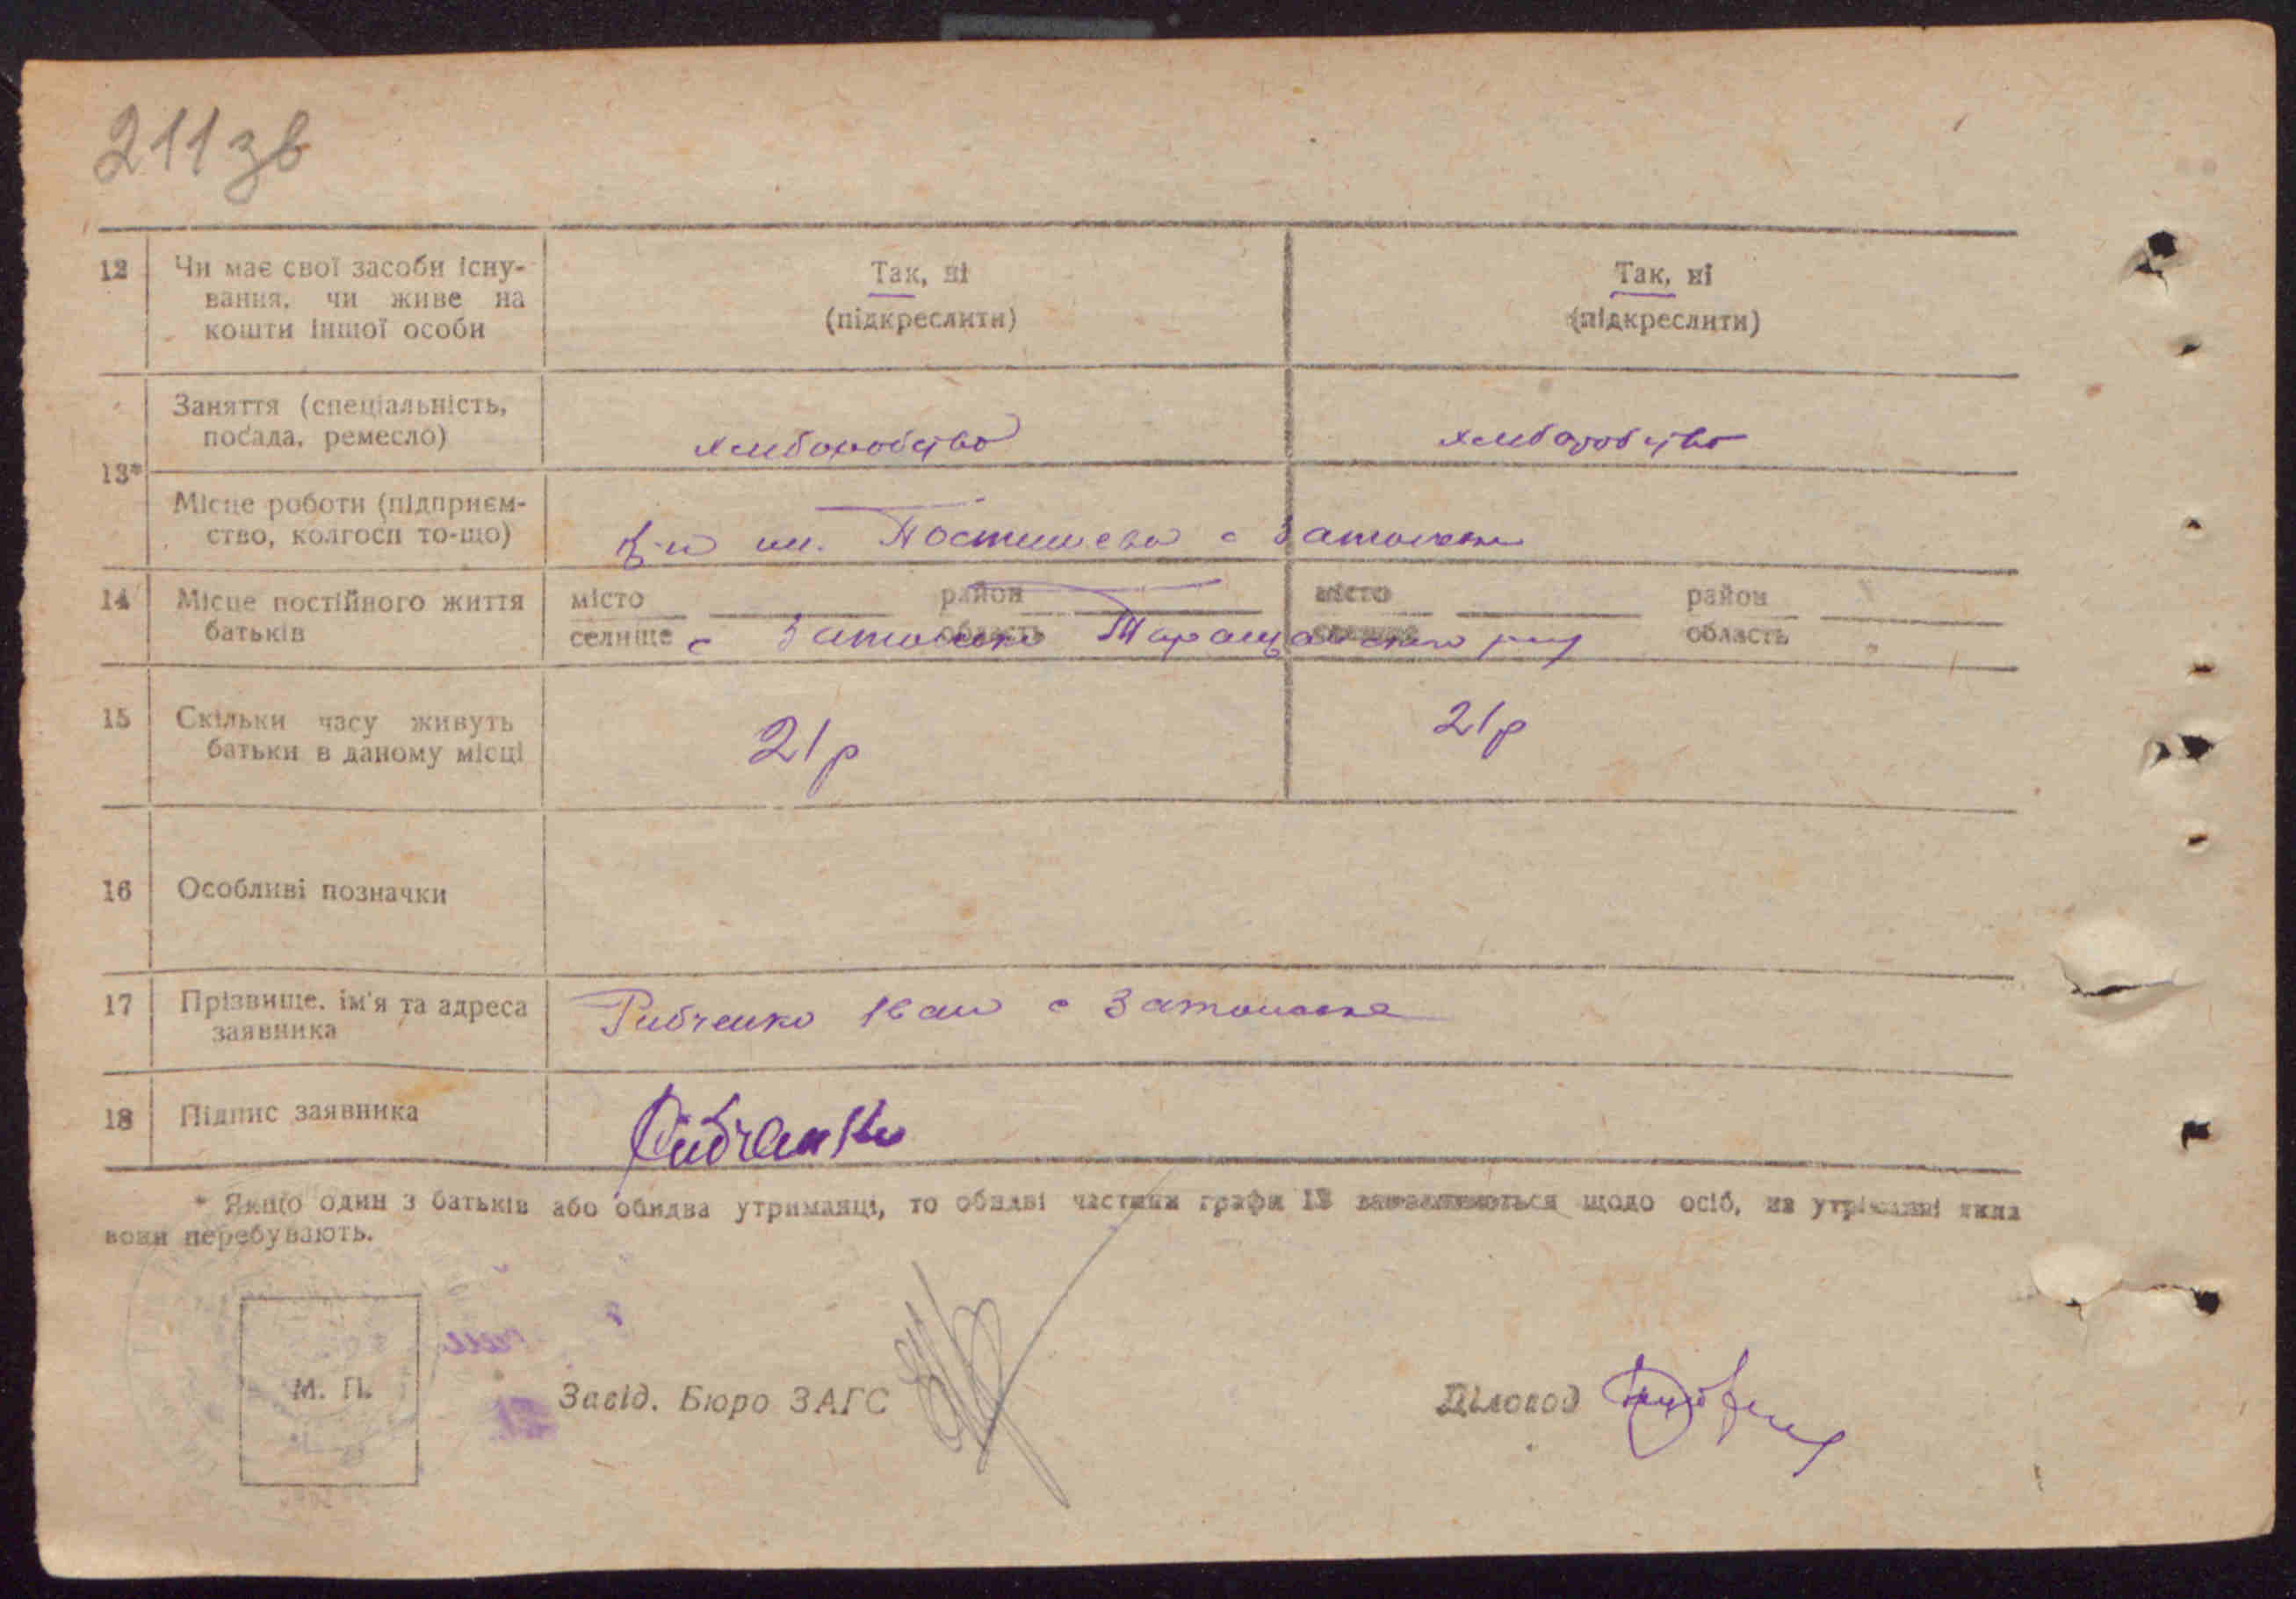 211зв
12 Чи має свої засоби існу-
вання, чи живе на
кошти іншої особи
Так, ні
(підкреслити)
Так, ні
(підкреслити)
13*
Заняття (спеціальність,
посада, ремесло)
хлиборобство
хлиборобство
Місце роботи (підприєм-
ство, колгосп то-що)
им. Постишева с
14 Місце постійного життя
батьків
місто район
селище область
с Таращанского
місто район
область
15 Скільки часу живуть
батьки в даному місці
21р
21р
16 Особливі позначки
17 Прізвище, ім'я та адреса
заявника
Рибченко Іван с
18 Підпис заявника
Рибченко
* Якщо один з батьків або обидва утриманці, то обидві частини графи 13 заповнюються щодо осіб, на утриманні яких
вони перебувають.
М. П.
Завід. Бюро ЗАГС
Діловод